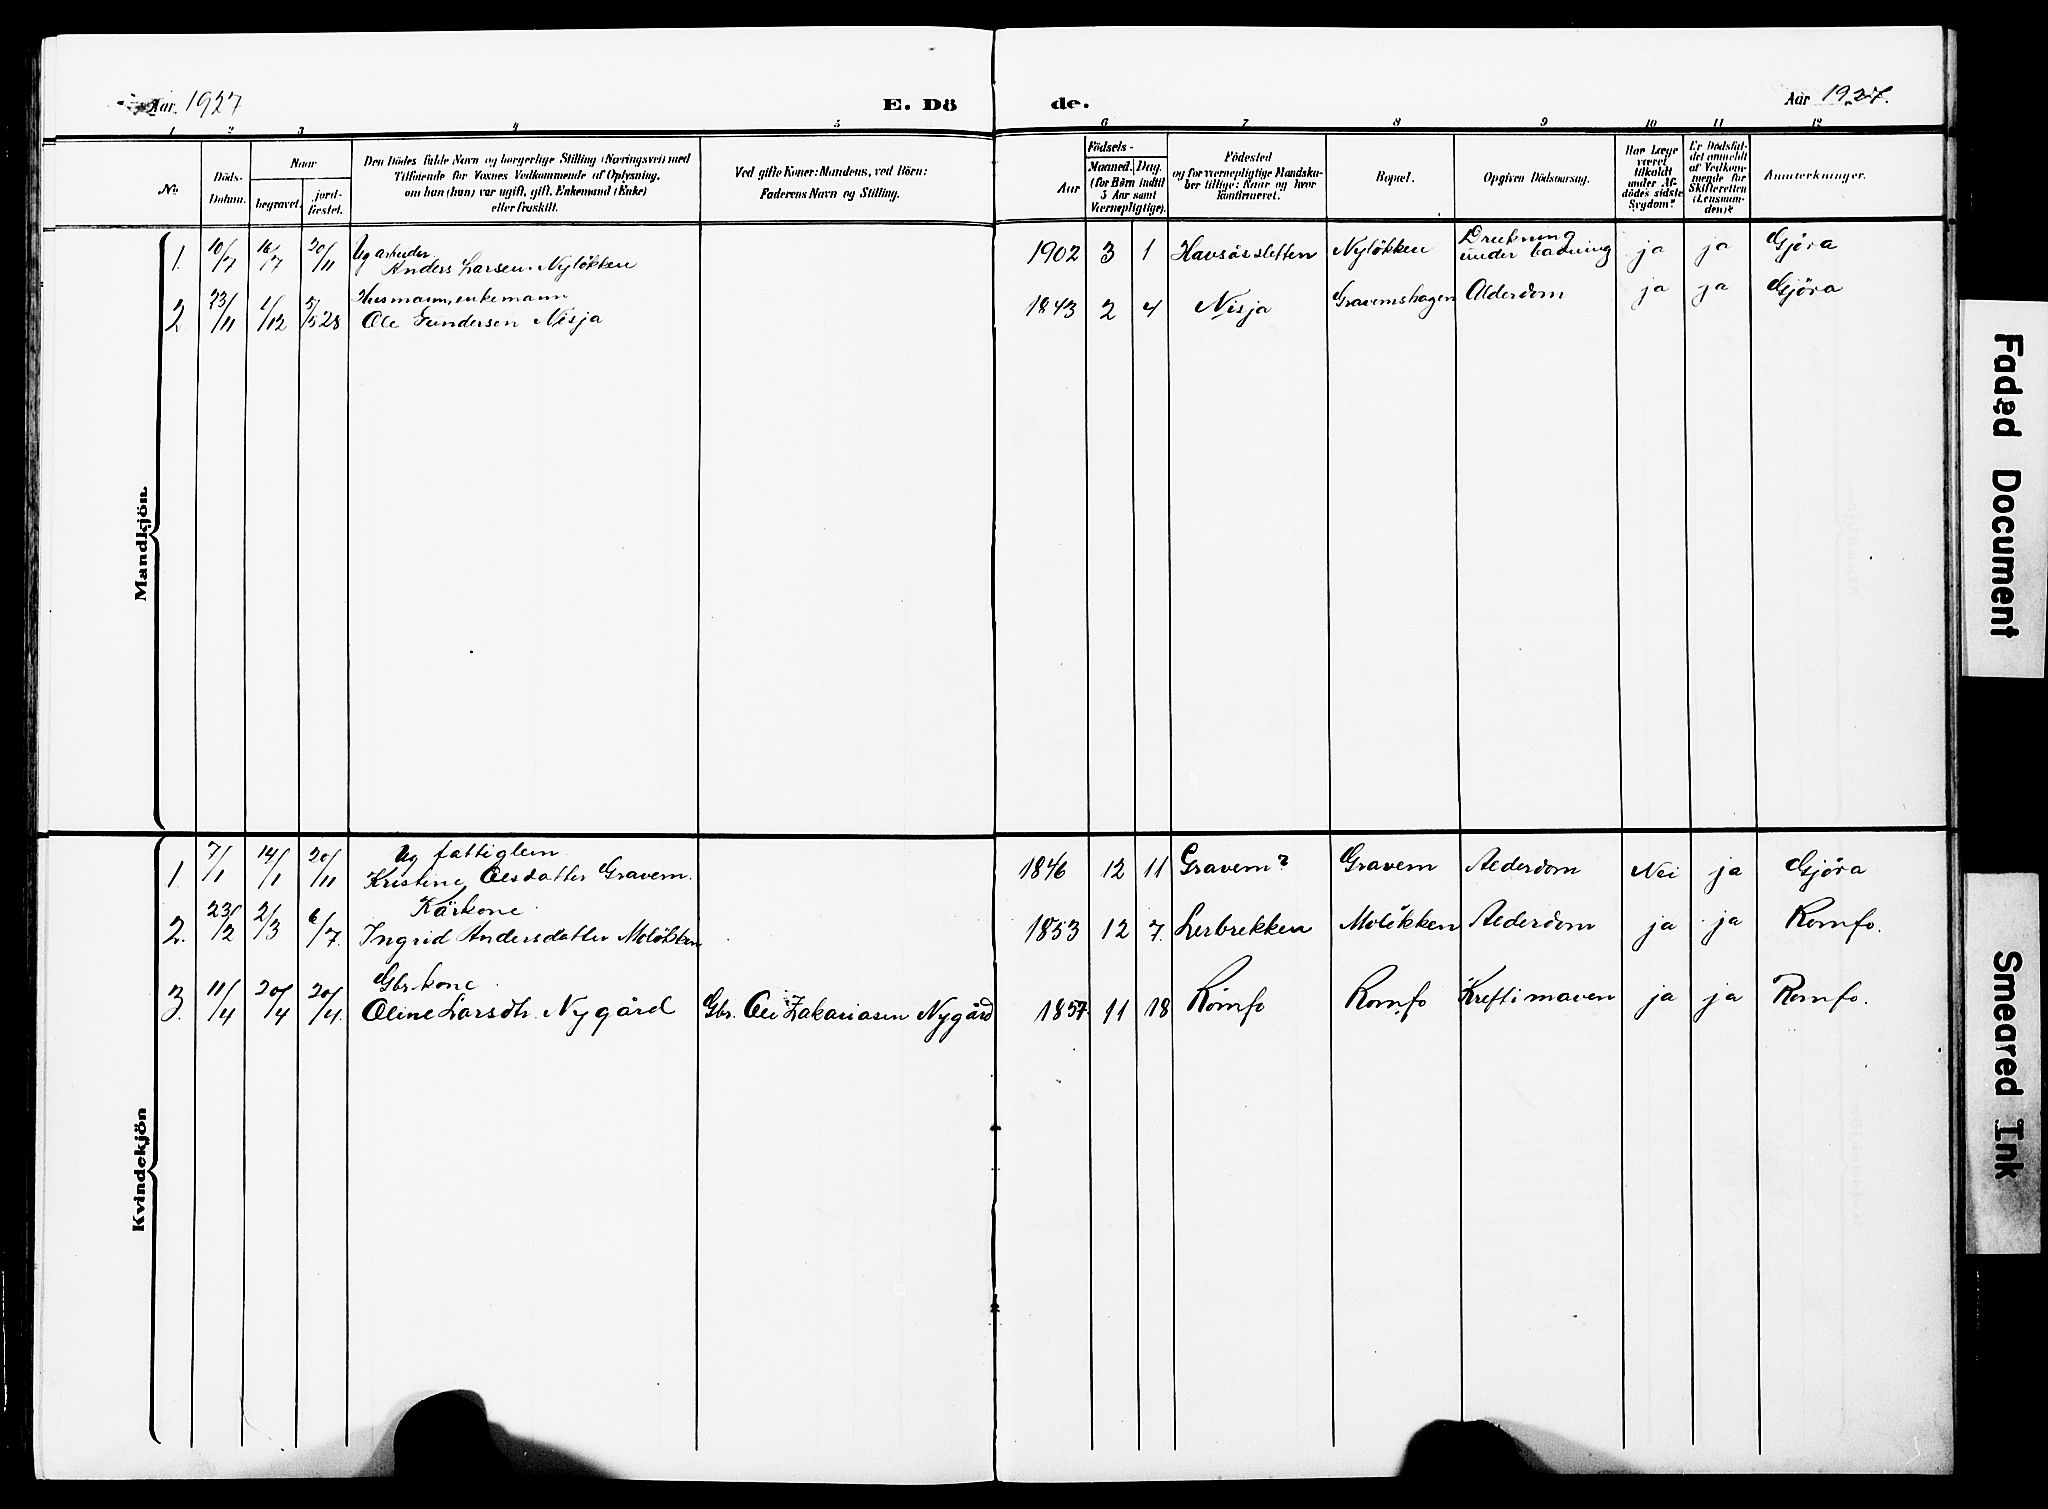 Aar 1927
E. Dö
de.
Aar 1927.
1 2 3 4 5 6 7 8 9 10 11 12
No.
Döds-
Datum.
Naar
begravet.
jord-
fæstet.
Den Dödes fulde Navn og borgerlige Stilling (Næringsvei) med
Tilföiende for Voxnes Vedkommende af Oplysning,
om han (hun) var ugift, gift, Enkemand (Enke)
eller fraskilt.
Ved gifte Koner: Mandens, ved Börn:
Faderens Navn og Stilling.
Födsels-
Aar
Maaned. Dag.
(for Börn indtil
5 Aar samt
Værnepligtige).
Födested
og for værnepligtige Mandska-
ber tillige: Naar og hvor
konfirmeret.
Bopæl.
Opgiven Dödsaarsag.
Har Læge
været
tilkaldt
under Af-
dödes sidste
Sygdom?
Er Dödsfal-
det anmeldt
af Vedkom-
mende for
Skifteretten
(Lensman-
den)?
Anmerkninger.
Mandkjön.
1. 10/7 16/7 20/11 Ug arbeider
Anders Larsen Nyløkken 1902 3 1 Havsåssletten Nyløkken Drukning
under badning ja ja Gjøra
2. 23/11 1/12 5/5 28 Husmann, enkemann
Ole Gundersen Nisja 1843 2 4 Nisja Gravemshagen Alderdom ja ja Gjøra
Kvindekjön
1. 7/1 14/1 20/11 Ug fattiglem
Kristine Olsdatter Gravem. 1846 12 11 Gravem? Gravem Alderdom Nei ja Gjøra
2. 23/2 2/3 6/7. Kårkone
Ingrid Andersdatter Moløkken 1853 12 7. Lerbrekken Moløkken Alderdom ja ja Romfo.
3. 11/4 20/4 20/4. Gbr.kone
Oline Larsdtr. Nygård Gbr. Ole Zakariasen Nygård 1857 11 18 Romfo Romfo Kreft i maven ja ja Romfo.
Faded Document
Smeared Ink